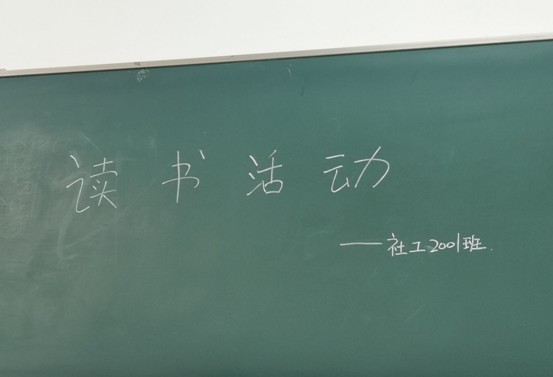 读书活动
——社工2001班.